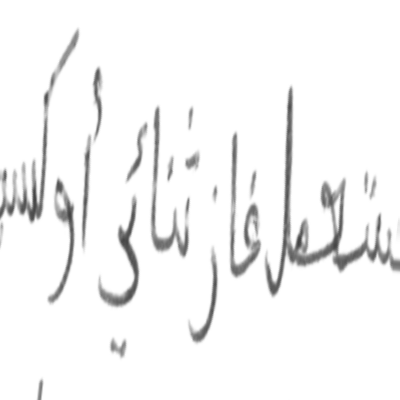 ستعمل غاز ثنائي أوكس